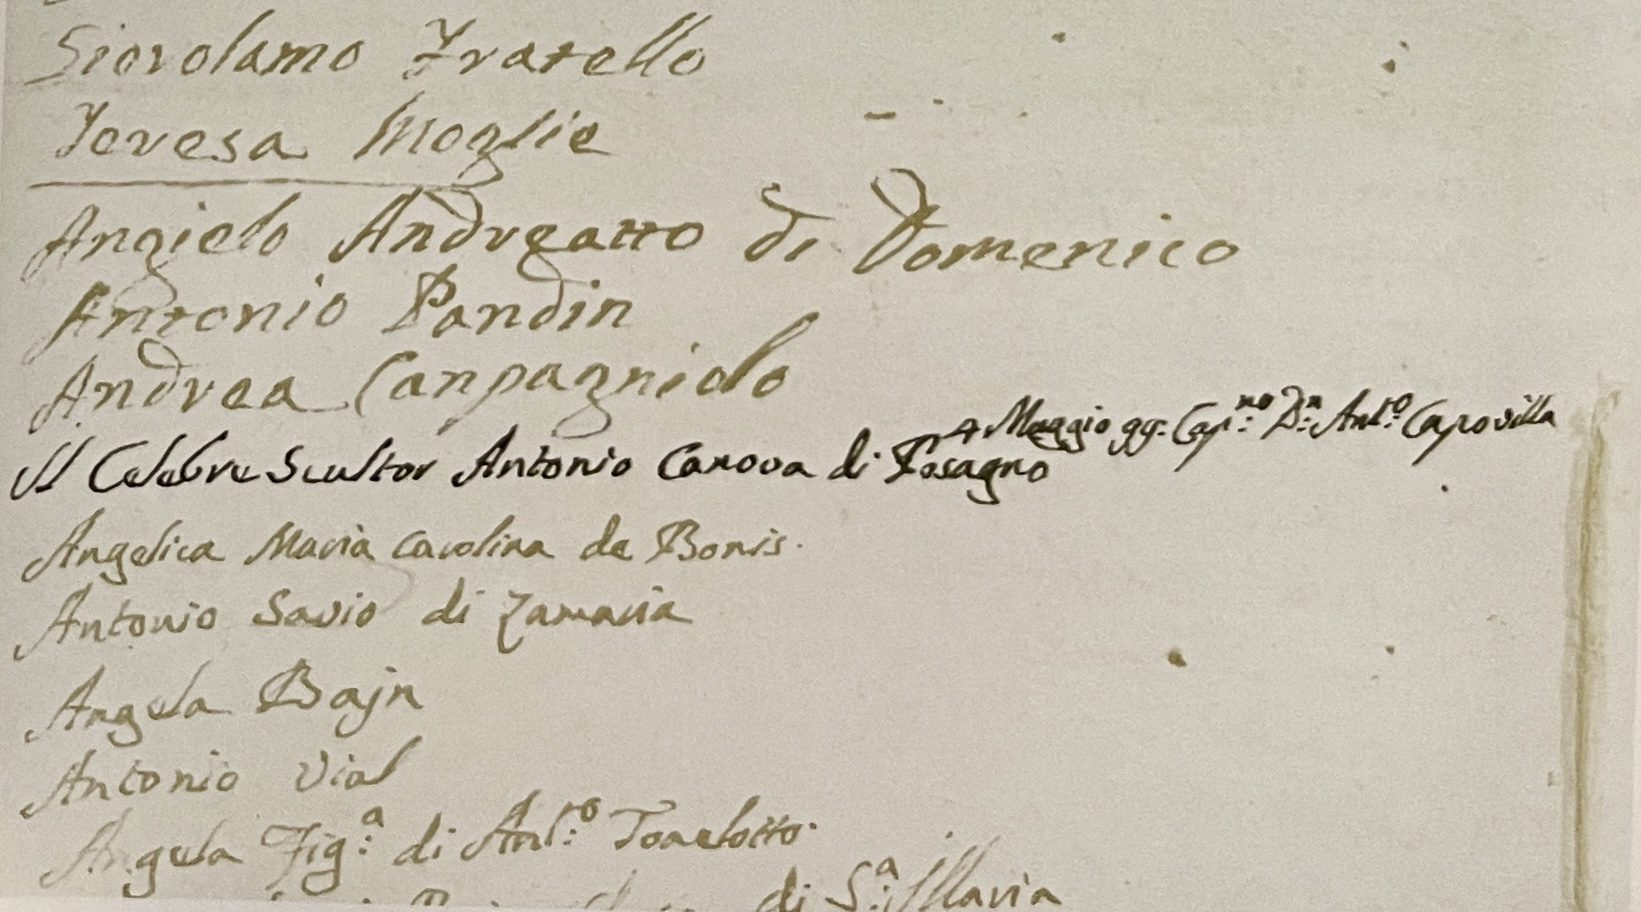 Giorolamo Fratello
Teresa Moglie
Angielo Andreatto di Domenico
Antonio Pandin
Andrea Canpagniolo
4 Maggio gg: Cap:no Dn: Ant:o Capovilla
Il Celebre Scultor Antonio Canova di Posagno
Angelica Maria Carolina de Bonis.
Antonio Savio di Zamaria
Angela Bajn
Antonio Vial
Angela Fig:a di Ant:o Tonelotto
di S:a Maria